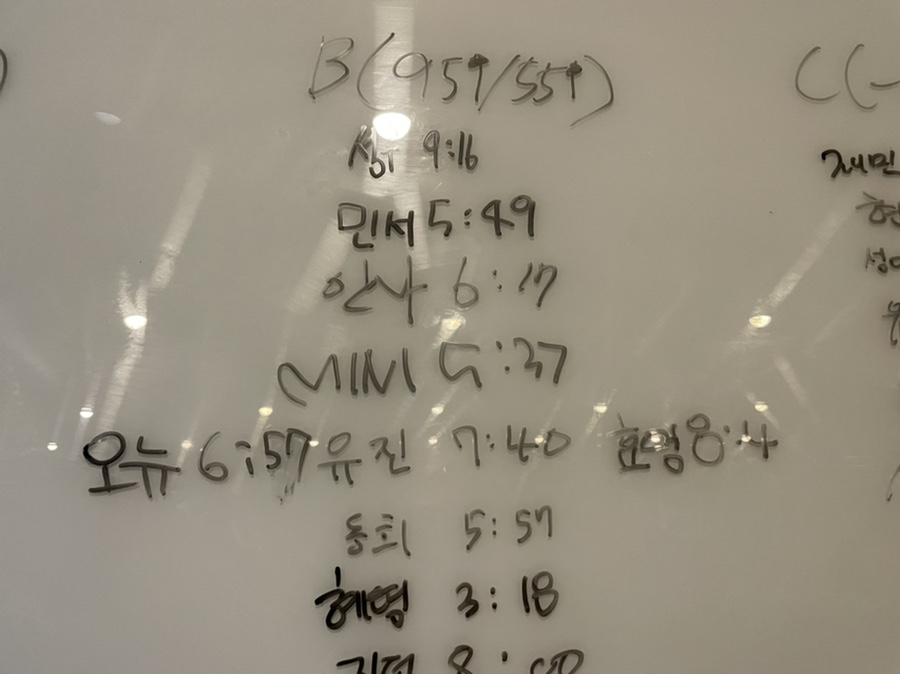 B(95↑/55↑)
9:16
민서 5:49
안나 6:17
MINI 5:37
오뉴 6:57 유진 7:40 효명 8:4
동희 5:57
혜령 3:18
C(-
재민
현